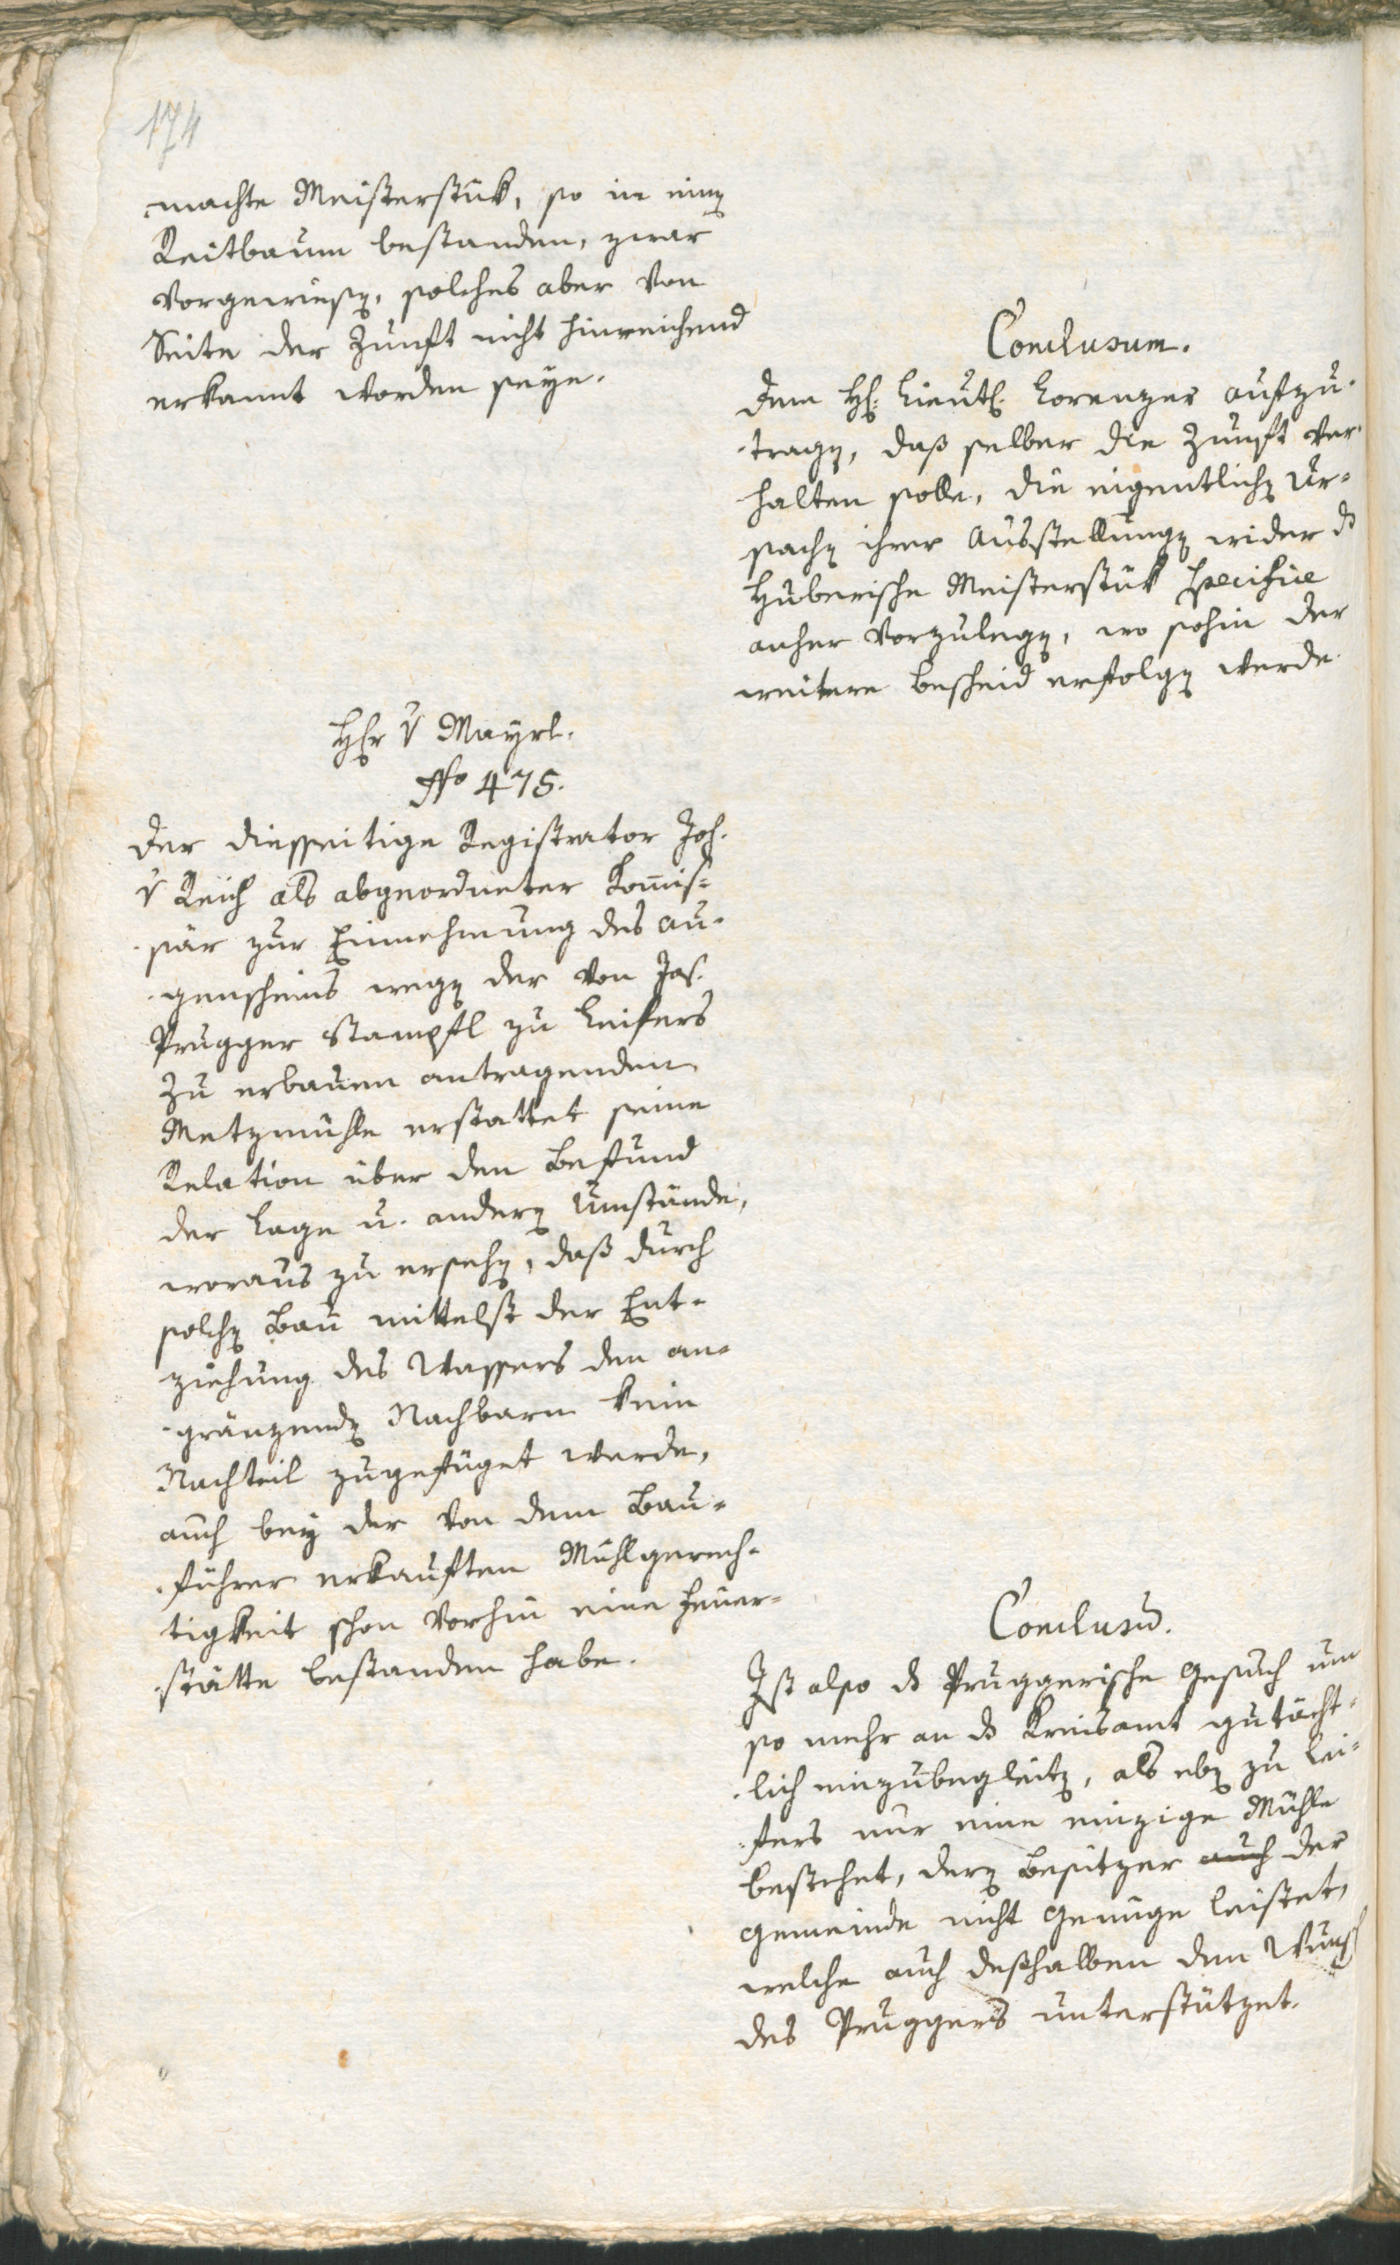 174
machte Meisterstük, so in einẽ
Reitbaum bestanden, zwar
vorgewiesẽ, solches aber von
Seite der Zunft nicht hinreichend
erkannt worden seye.
Conclusum.
dem H: Lieut: Lorenzer aufzu-
tragẽ, daß selber die Zunft ver-
halten solle, die eigentlichẽ Ur-
sachẽ ihrer Ausstellungẽ wider ds
Huberische Meisterstük specifice
anher vorzulegẽ, wo sohin der
weitere Bescheid erfolgẽ werde.
Hr v Mayrl.
No 475.
der diesseitige Registrator Joh.
v Reich als abgeordneter Kom̄is-
sär zur Einnehmung des Au-
genscheins wegẽ der von Jos.
Prugger Stampfl zu Leifers
zu erbauen antragenden
Metzmühle erstattet seine
Relation über den Befund
der Lage u. anderẽ Umstände,
woraus zu ersehẽ, daß durch
solchẽ Bau mittelst der Ent-
ziehung des Wassers den an-
gränzendẽ Nachbarn kein
Nachteil zugefüget werde,
auch bey der von dem Bau-
führer erkauften Mühlgerech-
tigkeit schon vorhin eine Feuer-
stätte bestanden habe.
Conclusū.
Ist also ds Pruggerische Gesuch um
so mehr an ds Kreisamt gutächt-
lich einzubegleitẽ, als ebẽ zu Lei-
fers nur eine einzige Mühle
bestehet, derẽ Besitzer auch der
Gemeinde nicht Genüge leistet,
welche auch deßhalben den Wunsch
des Pruggers unterstützet.